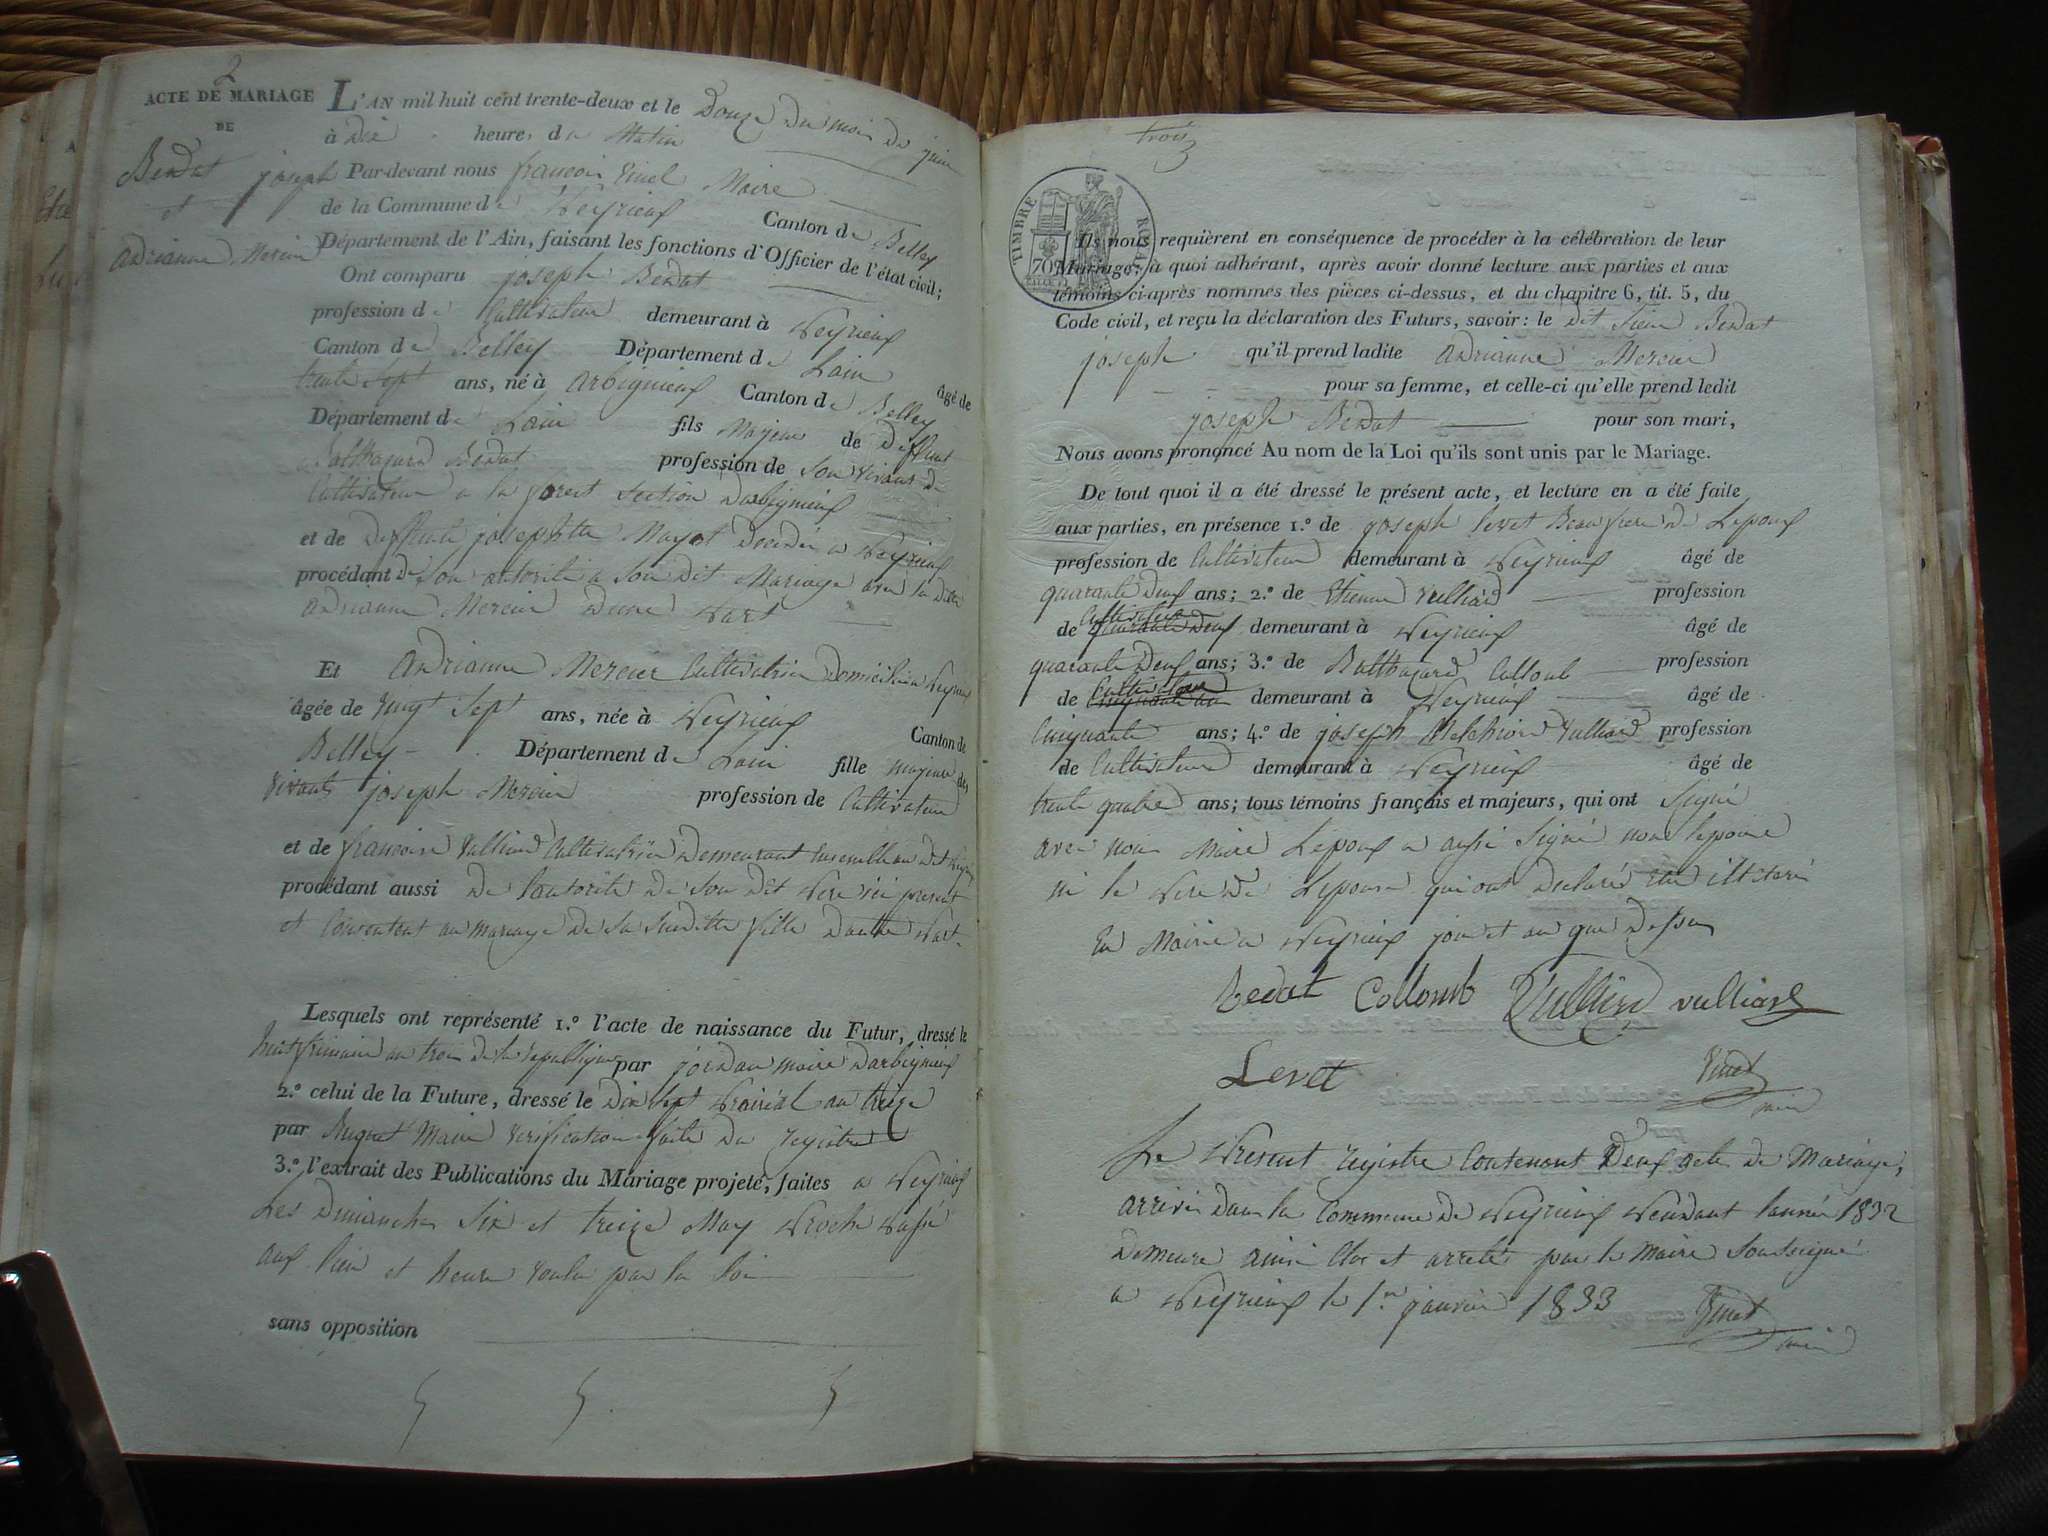 2
ACTE DE MARIAGE
DE
Bendat joseph
et
adrianne Mercier
L'AN mil huit cent trente-deux et le Douze du mois de juin
à Dix heures du Matin
Par-devant nous francois Maire
de la Commune de Peyrieux Canton de Belley
Département de l'Ain, faisant les fonctions d'Officier de l'état civil;
Ont comparu joseph Bendat
profession de Cultivateur demeurant à Peyrieux
Canton de Belley Département de Lain âgé de
trente Sept ans, né à arbignieux Canton de Belley
Département de Lain fils Majeur de Deffunt
Balthazard Bendat profession de Son vivant de
Cultivateur a la forest Section Darbignieux
et de Deffunte josephtte Decedée a Peyrieux
procédant de Son autorité a Son dit Mariage avec la ditte
adrianne Mercier Dune part
Et adrianne Mercier Cultivatrice Domiciliée a Peyrieux
âgée de vingt Sept ans, née à Peyrieux Canton de
Belley Département de Lain fille majeure des
vivants joseph Mercier profession de Cultivateur
et de francoise Vulliard Cultivatrice Demeurant Ensemble au dit Peyrieux
procédant aussi De lautorité De Son Dit Pere ici present
et Consentent au mariage De Sa Susditte fille Dautre Part
Lesquels ont représenté 1.º l'acte de naissance du Futur, dressé le
huit frimaire an trois de la republique par jordan maire Darbignieux
2.º celui de la Future, dressé le Dix Sept Prairial an treize
par Maire verification faite du registre
3.º l'extrait des Publications du Mariage projeté, faites a Peyrieux
Les Dimanches Six et treize May Proche Passé
aux lieu et heure voulu par la loi
sans opposition
trois
TIMBRE ROYAL
70
Ils nous requièrent en conséquence de procéder à la célébration de leur
Mariage; à quoi adhérant, après avoir donné lecture aux parties et aux
témoins ci-après nommés des pièces ci-dessus, et du chapitre 6, tit. 5, du
Code civil, et reçu la déclaration des Futurs, savoir: le dit Sieur Bendat
joseph qu'il prend ladite adrianne Mercier
pour sa femme, et celle-ci qu'elle prend ledit
joseph Bendat pour son mari,
Nous avons prononcé Au nom de la Loi qu'ils sont unis par le Mariage.
De tout quoi il a été dressé le présent acte, et lecture en a été faite
aux parties, en présence 1.º de joseph Levet Beau frere de Lepoux
profession de Cultivateur demeurant à Peyrieux âgé de
quarante Deux ans; 2.º de Etienne vulliard profession
de Cultivateur quarante Deux demeurant à Peyrieux âgé de
quarante Deux ans; 3.º de Balthazard Colloub profession
de Cultivateur Cinquante an demeurant à Peyrieux âgé de
Cinquante ans; 4.º de joseph Melchior Vulliard profession
de Cultivateur demeurant à Peyrieux âgé de
trente quatre ans; tous témoins français et majeurs, qui ont Signé
avec nous Maire Lepoux a aussi Signé non lepouse
ni le Pere de Lepouse qui ont Declaré etre illeteré
En Mairie a Peyrieux jour et an que Dessus
Bedat Collomb Vulliard vulliard
Levet
maire
Le Present registre Contenant Deux acte de Mariage,
arrivée dans la Commune De Peyrieux Pendant lannée 1832
Demeure ainsi Clos et arreté par le Maire Soussigné
a Peyrieux le 1.er janvier 1833
maire